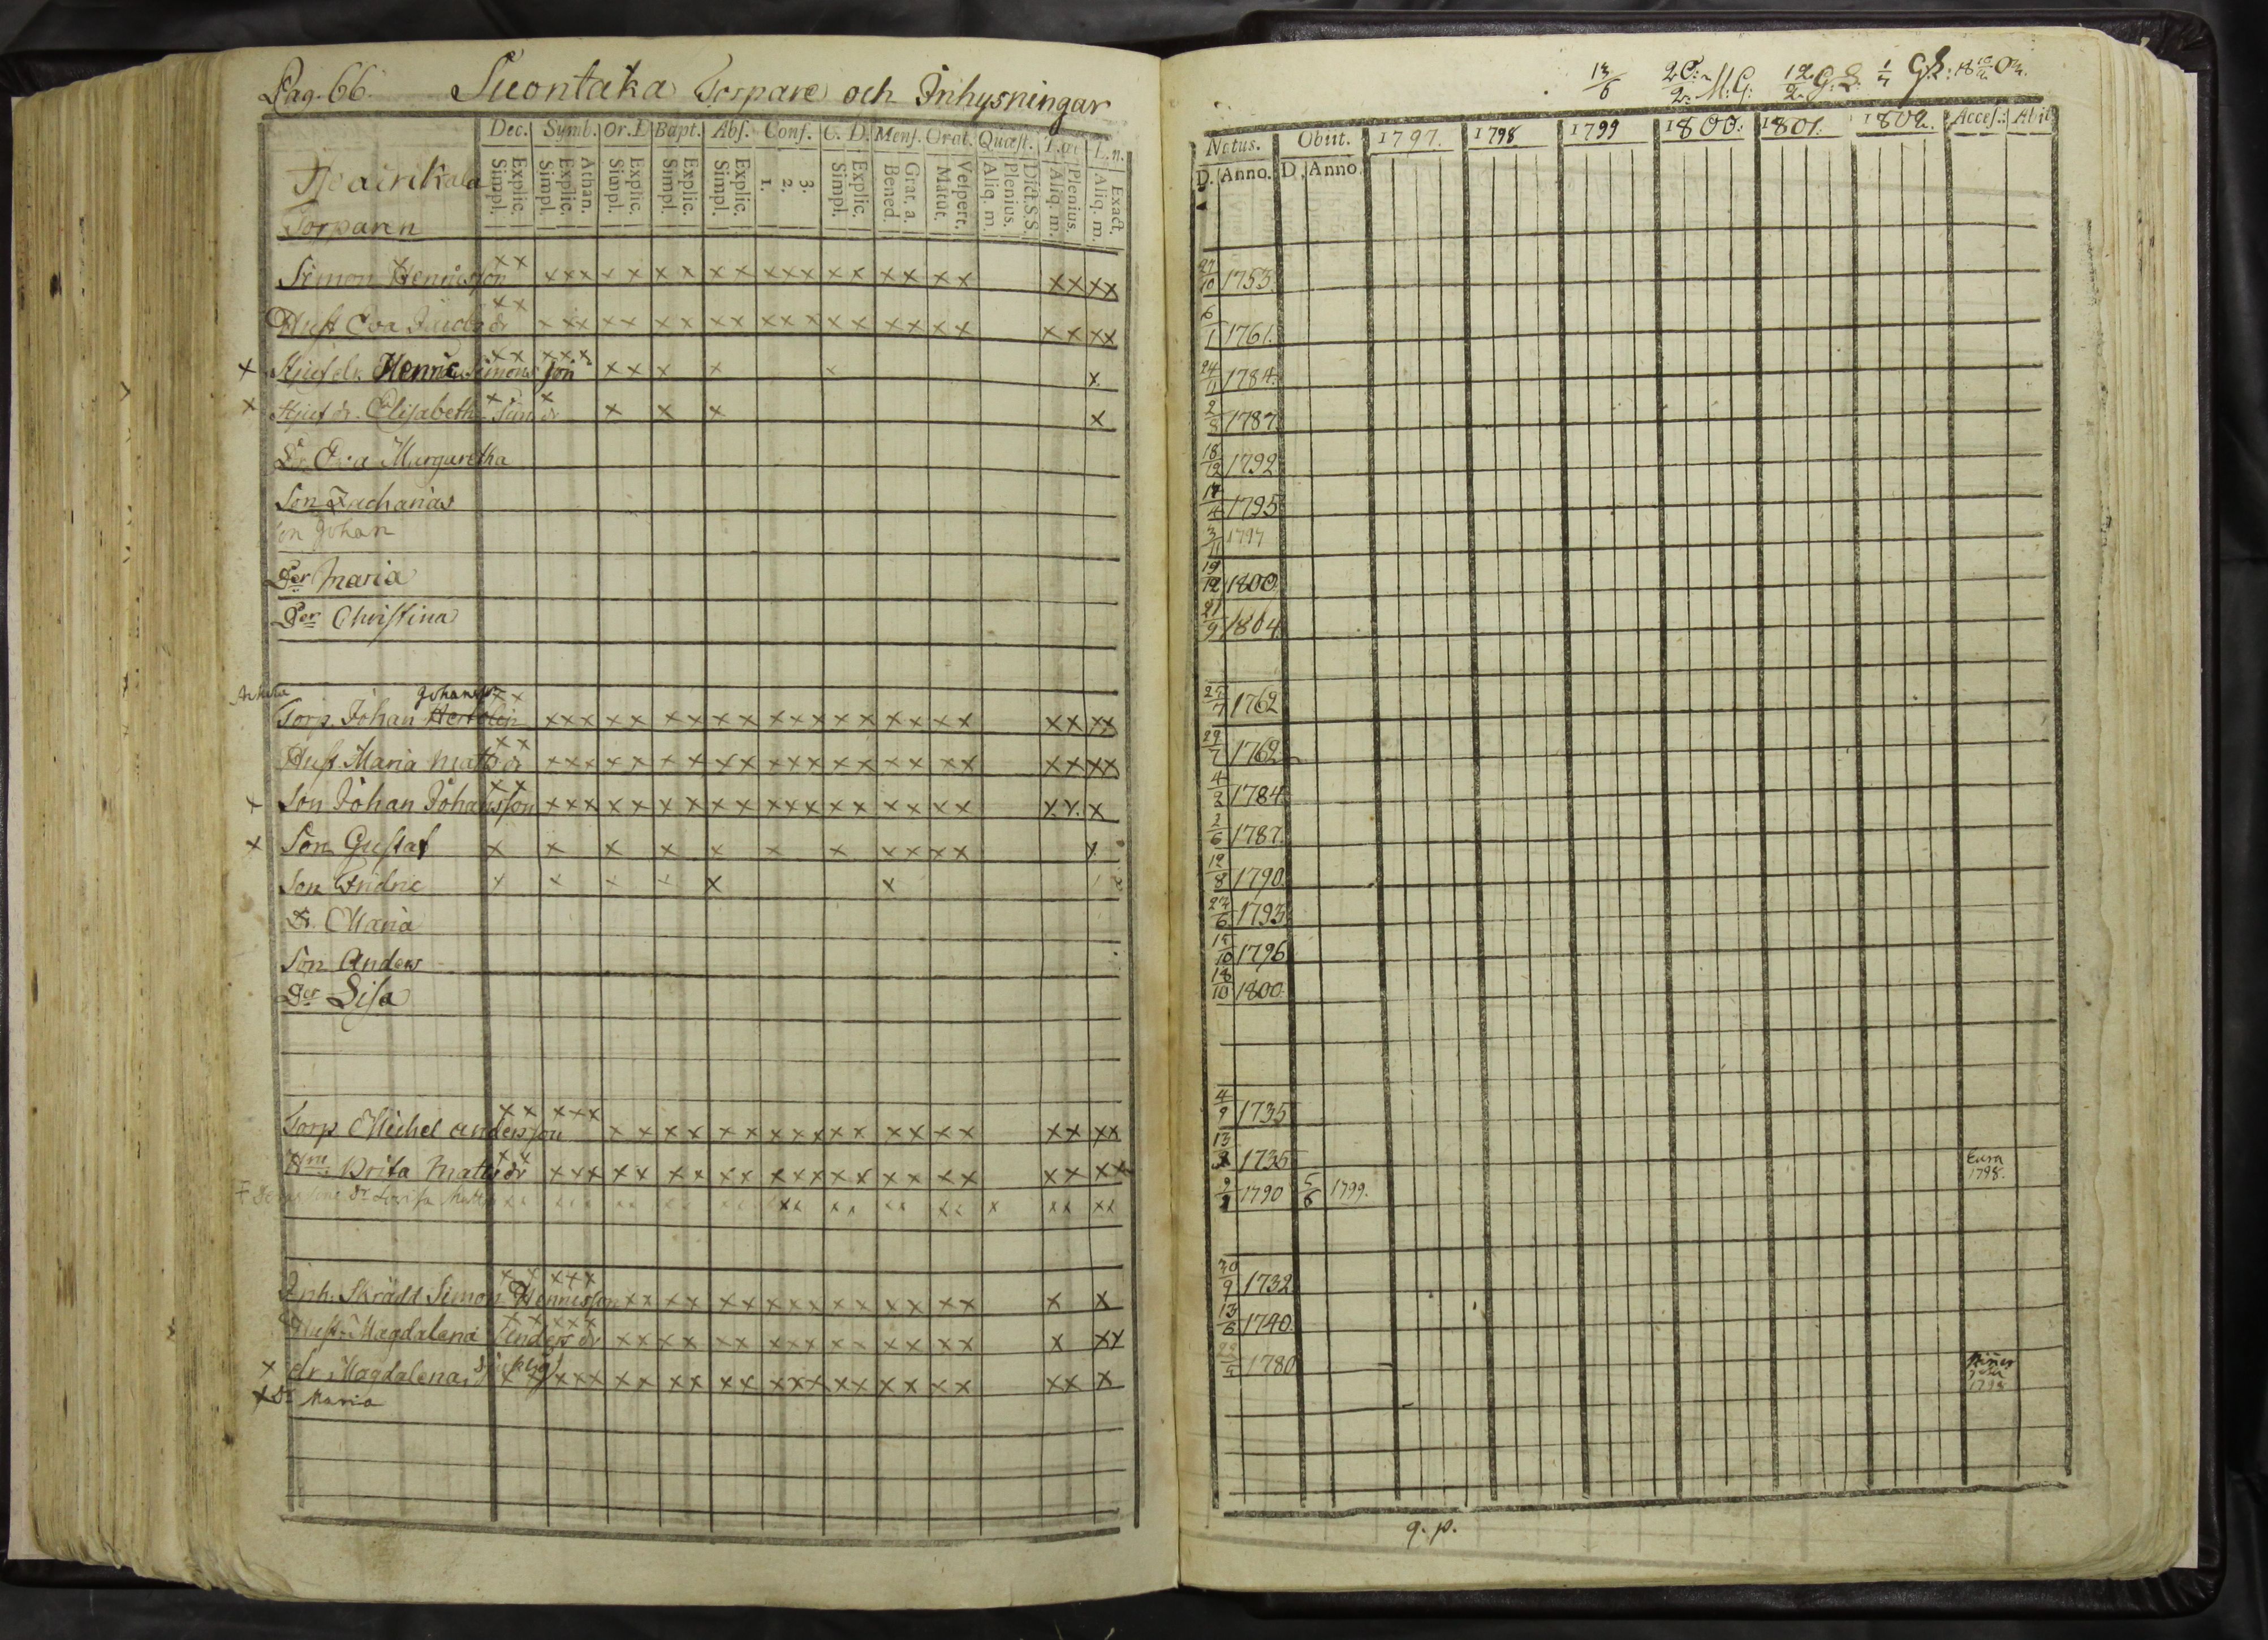 Pag. 66. Suontaka Torpare och Inhysningar
Dec. Symb. Or. D Bapt. Abs. Conf. C. D. Mens. Orat. Quæst. L. n.
Explic. Simpl. Athan. Explic. Simpl. Explic. Simpl. Explic. Simpl. Explic. Simpl. 3. 2. 1. Explic. Simpl. Grat. a. Bened. Vespert. Matut. Dict. S.S. Plenius. Aliq. m. Plenius. Aliq. m. Exact. Aliq. m.
Torparen
Simon Henricsson xx xxx xx xx xx xxx xx xx xx xx xx
Hust Eva Jacobs dr xx xxx xx xx xx xxx xx xx xx xx xx
x Henric Simons son xx xxx xx x x x x
x Elisabeth Sim dr x x x x x x
Dr. Eva Margaretha
Son Zacharias
Son Johan
Dor Maria
Dor Christina
Johansson
Torp. Johan xx xxx xx xx xx xxx xx xx xx xx xx
Hust. Maria Matts dr xx xxx xx xx xx xxx xx xx xx xx xx
x Son Johan Johansson xx xxx xx xx xx xxx xx xx xx x.x. x
x Son Gustaf x x x x x x x xx xx x
Son Fridric x x x x x x
Dr. Maria
Son Anders
Dor Lisa
Torp Michel Andersson xx xxx xx xx xx xxx xx xx xx xx xx
Brita Matts dr xx xxx xx xx xx xxx xx xx xx xx xx
dr Lovisa Matts
Inh. Skrädd Simon Henricsson xx xxx xx xx xx xxx xx xx xx x x
Hust. Magdalena Anders dr xx xxx xx xx xx xxx xx xx xx x xx
x dr. Magdalena, sjuklig xx xxx xx xx xx xxx xx xx xx xx x
x Dr Maria
13/6
Natus. Obiit. 1797. 1798 1799 1800. 1801. 1802. Acces. Abit.
D. Anno. D. Anno.
27/10 1753.
6/1 1761.
24/11 1784.
2/8 1787.
18/12 1792
17/4 1795
3/11 1797
19/12 1800
21/9 1804
27/7 1762
29/7 1762
4/2 1784
2/6 1787.
12/8 1790.
23/6 1793.
15/10 1796
18/10 1800.
4/9 1735
13 1735 Eura 1798.
1790 5/6 1799.
30/9 1732
13/6 1740.
1780 1798
q. p.